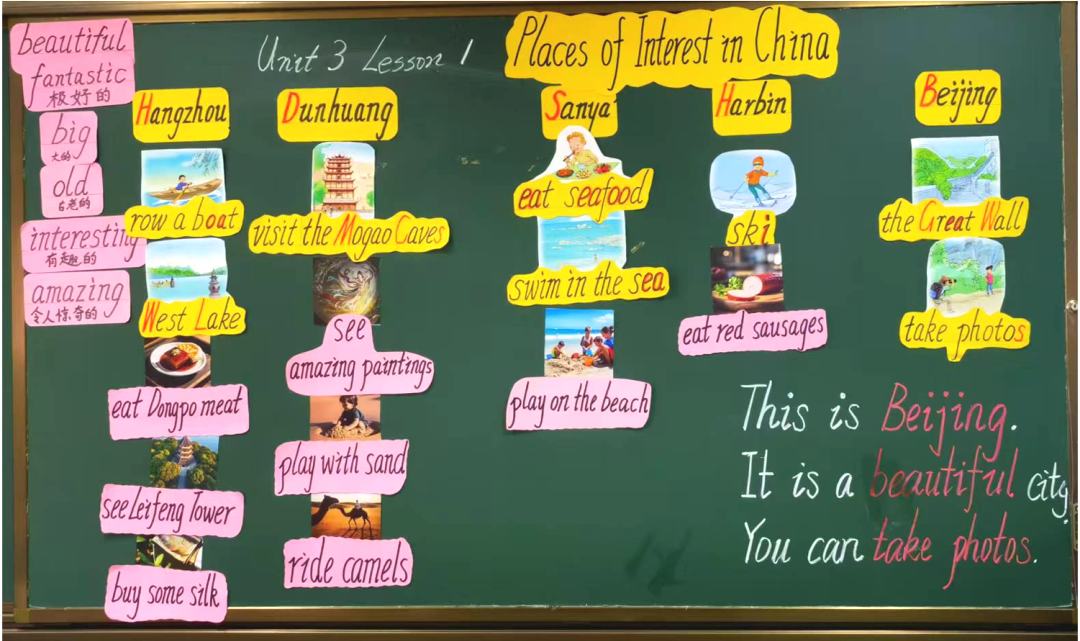 Unit 3 Lesson 1
Places of Interest in China
beautiful
fantastic
极好的
big
大的
old
古老的
interesting
有趣的
amazing
令人惊奇的
Hangzhou
row a boat
West Lake
eat Dongpo meat
see Leifeng Tower
buy some silk
Dunhuang
visit the Mogao Caves
see
amazing paintings
play with sand
ride camels
Sanya
eat seafood
swim in the sea
play on the beach
Harbin
ski
eat red sausages
Beijing
the Great Wall
take photos
This is Beijing.
It is a beautiful city.
You can take photos.